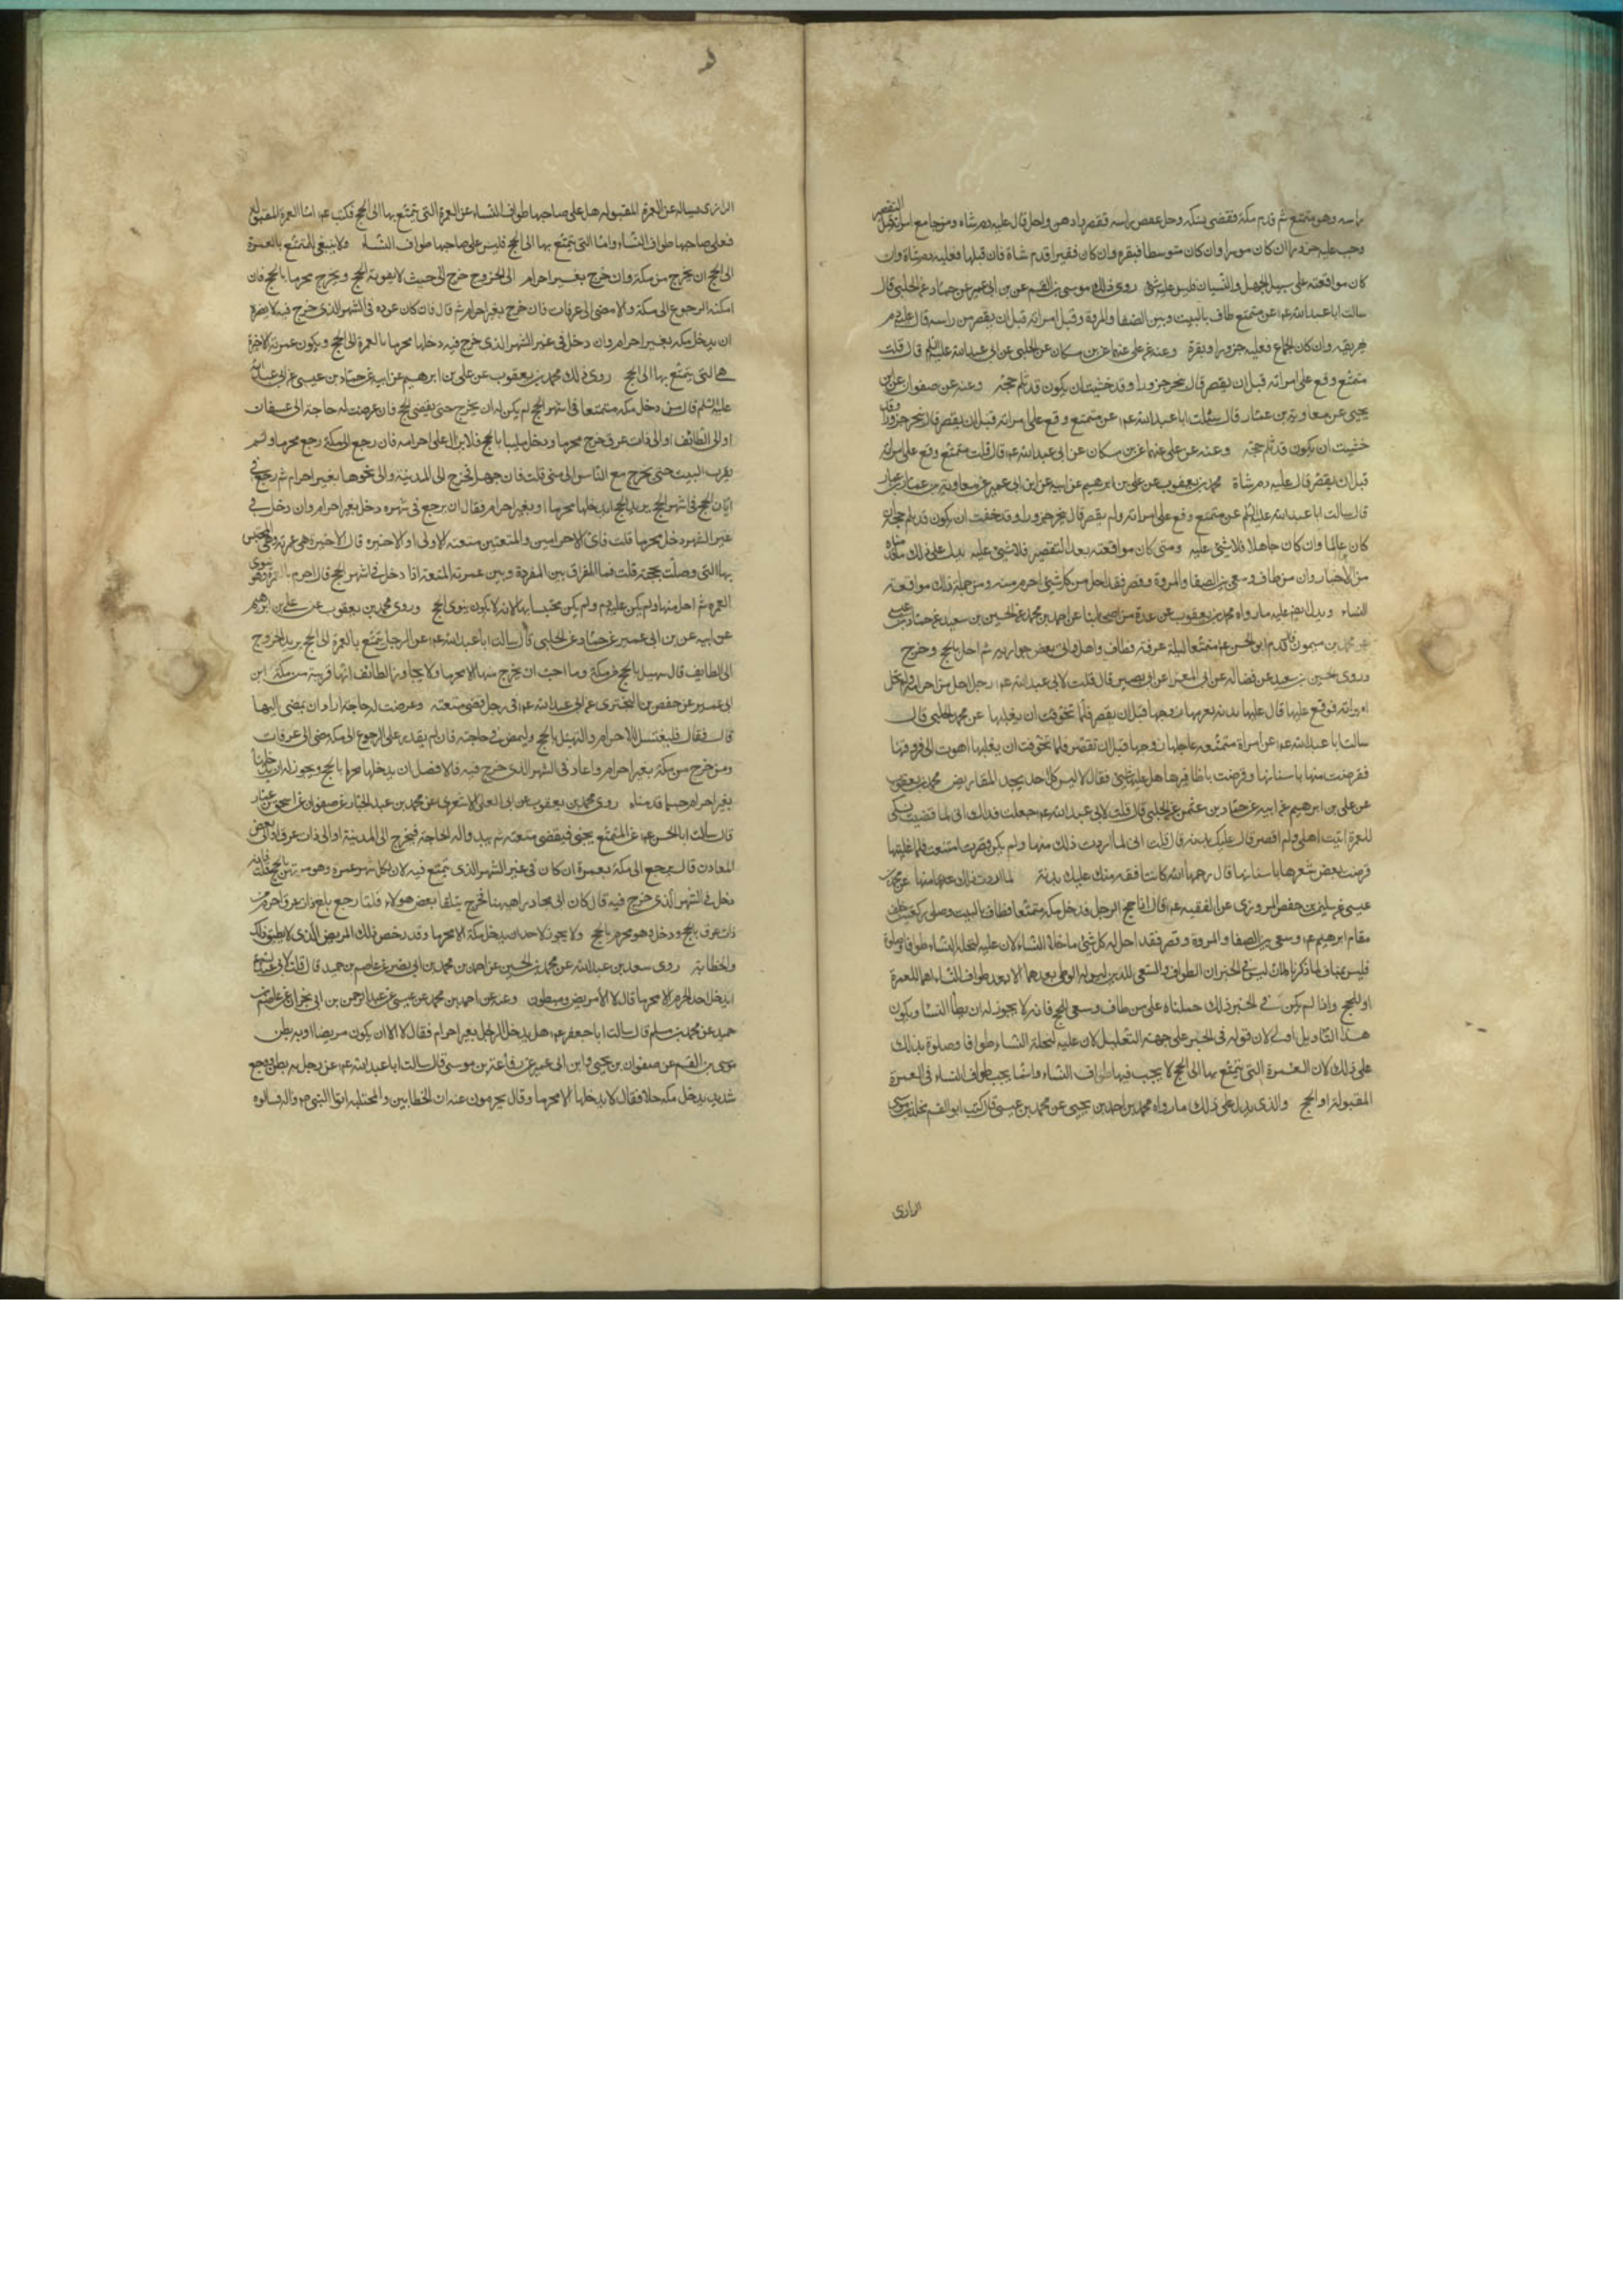 راسه وهو متمتع ثم قدم مكة فقضى نسكه وحل عقص راسه فقصر وادهن واحل قال عليه دم شاه ومن جامع امراته قبل التقصير
وجب عليه جزور ان كان موسرا وان كان متوسطا فبقره وان كان فقيرا فدم شاة فان قبلها فعليه دم شاة وان
كان مواقعته على سبيل الجهل والنسيان فليس عليه شئ روى ذلك موسى بن القسم عن بن ابى عمير عن حماد عن الحلبى قال
سالت ابا عبد الله ع عن متمتع طاف بالبيت وبين الصفا والمروة وقبل امراته قبل ان يقصر من راسه قال عليه دم
يهريقه وان كان الجماع فعليه جزور او بقرة وعنه عن على عنهما عن بن مسكان عن الحلبى عن ابى عبد الله عليه السلم قال قلت
متمتع وقع على امراته قبل ان يقصر قال ينحر جزورا وقد خشيت ان يكون قد ثلم حجه وعنه عن صفوان بن
يحيى عن معاوية بن عمار قال سئلت ابا عبد الله ع عن متمتع وقع على امراته قبل ان يقصر قال ينحر جزورا وقد
خشيت ان يكون قد ثلم حجه وعنه عن على عنهما عن بن مسكان عن ابى عبد الله ع قال قلت متمتع وقع على امراته
قبل ان يقصر قال عليه دم شاة محمد بن يعقوب عن على بن ابرهيم عن ابيه عن ابن ابى عمير عن معاوية بن عمار
قال سالت ابا عبد الله عليه السلم عن متمتع وقع على امراته ولم يقصر قال ينحر جزورا وقد خفت ان يكون قد ثلم حجه ان
كان عالما وان كان جاهلا فلا شئ عليه ومتى كان مواقعته بعد التقصير فلا شئ عليه يدل على ذلك ما قدمناه
من الاخبار وان من طاف وسعى بين الصفا والمروة وقصر فقد احل من كل شئ احرم منه ومن جملة ذلك مواقعة
النساء ويدل ايضا عليه ما رواه محمد بن يعقوب عن عدة من اصحابنا عن احمد بن محمد عن الحسين بن سعيد عن حماد بن عيسى
عن محمد بن ميمون قال قدم ابو الحسن ع متمتعا ليلة عرفة فطاف واحل واتى بعض جواريه ثم احل بالحج وخرج
وروى الحسين بن سعيد عن فضالة عن ابى المعزا عن ابى بصير قال قلت لابى عبد الله ع رجل احل من احرامه ولم تحل
امراته فوقع عليها قال عليها بدنة يغرمها زوجها قبل ان يقصر فلما تخوفت ان يغلبها عن محمد الحلبى قال
سالت ابا عبد الله ع عن امراة متمتعة عاجلها زوجها قبل ان تقصر فلما تخوفت ان يغلبها اهوت الى قرونها
فقرضت منها باسنانها وقرضت باظافيرها هل عليها شئ فقال لا ليس كل احد يجد المقاريض محمد بن يعقوب
عن على بن ابرهيم عن ابيه عن حماد بن عثمن عن الحلبى قال قلت لابى عبد الله ع جعلت فداك انى لما قضيت نسكى
للعمرة اتيت اهلى ولم اقصر قال عليك بدنة قال قلت انى لما اردت ذلك منها ولم يكن قصرت امتنعت فلما غلبتها
قرضت بعض شعرها باسنانها قال رحمها الله كانت افقه منك عليك بدنة
عيسى عن سليمن بن حفص المروزى عن الفقيه ع قال اذا حج الرجل فدخل مكة متمتعا فطاف بالبيت وصلى ركعتين خلف
مقام ابرهيم ع وسعى بين الصفا والمروة وقصر فقد احل له كل شئ ما خلا النساء لان عليه لتحلة النساء طوافا وصلوة
فليس بمناف لما ذكرناه لانه ليس فى الخبر ان الطواف والسعى للذين ليس له الوطى بعدهما الا بعد طواف النساء اهما للعمرة
او للحج واذا لم يكن فى الخبر ذلك حملناه على من طاف وسعى للحج فانه لا يجوز له ان يطأ النساء ويكون
هذا التاويل اولى لان قوله فى الخبر على جهة التعليل لان عليه لتحلة النساء طوافا وصلوة يدلك
على ذلك لان العمرة التى يتمتع بها الى الحج لا يجب فيها طواف النساء وانما يجب طواف النساء فى العمرة
المقبولة او الحج والذى يدل على ذلك ما رواه محمد بن احمد بن يحيى عن محمد بن عيسى قال كتب ابو القسم مخلد بن موسى
الرازى
الرازى يساله عن العمرة المقبوله هل على صاحبها طواف النساء عن العمرة التى يتمتع بها الى الحج فكتب ع اما العمرة المقبوله
فعلى صاحبها طواف النساء واما التى يتمتع بها الى الحج فليس على صاحبها طواف النساء ولا ينبغى للمتمتع بالعمرة
الى الحج ان يخرج من مكة وان خرج بغير احرام الى الخروج خرج الى حيث لا يفوته الحج ويخرج محرما بالحج فان
امكنه الرجوع الى مكة والا مضى الى عرفات فان خرج بغير احرام ثم قال فان كان عوده فى الشهر الذى خرج فيه لا يضره
ان يدخل مكه بغير احرام وان دخل فى غير الشهر الذى خرج فيه دخلها محرما بالعمرة الى الحج ويكون عمرته الاخيرة
هى التى يتمتع بها الى الحج روى ذلك محمد بن يعقوب عن على بن ابرهيم عن ابيه عن حماد بن عيسى عن ابى عبد الله
عليه السلم قال من دخل مكه متمتعا فى اشهر الحج لم يكن له ان يخرج حتى يقضى الحج فان عرضت له حاجة الى عسفان
او الى الطائف او الى ذات عرق خرج محرما ودخل ملبيا بالحج فلا يزال على احرامه فان رجع الى مكة رجع محرما ولم
يقرب البيت حتى يخرج مع الناس الى منى قلت فان جهل فخرج الى المدينة والى نحوها بغير احرام ثم رجع فى
ابان الحج فى اشهر الحج يريد الحج ايدخلها محرما او بغير احرام فقال ان يرجع فى شهره دخل بغير احرام وان دخل فى
غير الشهر دخل محرما قلت فاى الاحرامين والمتعتين متعته الاولى او الاخيره قال الاخيره هى عمرته وهى المحتبس
بها التى وصلت بحجته قلت فما الفرق بين المفردة وبين عمرة المتعة اذا دخل فى اشهر الحج قال احرم بالعمرة وهو ينوى
العمره ثم احل منها ولم يكن عليه دم ولم يكن محتبسا بها لانه لا يكون ينوى الحج وروى محمد بن يعقوب عن على بن ابرهيم
عن ابيه عن بن ابى عمير عن حماد عن الحلبى قال سالت ابا عبد الله ع عن الرجل يتمتع بالعمرة الى الحج يريد الخروج
الى الطايف قال يهل بالحج من مكة وما احب ان يخرج منها الا محرما ولا يجاوز الطائف انها قريبة من مكة ابن
ابى عمير عن حفص بن البخترى عن ابى عبد الله ع فى رجل قضى متعته وعرضت له حاجة اراد ان يمضى اليها
قال فقال فليغتسل للاحرام وليهل بالحج وليمض فى حاجته فان لم يقدر على الرجوع الى مكه مضى الى عرفات
ومن خرج من مكة بغير احرام وعاد فى الشهر الذى خرج فيه فالافضل ان يدخلها محرما بالحج ويجوز له ان يدخلها
بغير احرام حسبما قدمناه روى محمد بن يعقوب عن ابى العلى الاشعرى عن محمد بن عبد الجبار عن صفوان عن اسحق بن عمار
قال سالت ابا الحسن ع عن المتمتع يجئ فيقضى متعته ثم يبدو له الحاجة فيخرج الى المدينة او الى ذات عرق او الى بعض
المعادن قال يرجع الى مكة بعمرة ان كان فى غير الشهر الذى يتمتع فيه لان لكل شهر عمرة وهو مرتهن بالحج قلت فانه
دخل فى الشهر الذى خرج فيه قال كان ابى مجاورا هيهنا فخرج يتلقا بعض هولاء فلما رجع بلغ ذات عرق احرم من
ذات عرق بالحج ودخل وهو محرم بالحج ولا يجوز لاحد ان يدخل مكة الا محرما وقد رخص ذلك المريض الذى لا يطيق ذلك
والحطابة روى سعد بن عبد الله عن محمد بن الحسين عن احمد بن محمد بن ابى نصر عن عاصم بن حميد قال قلت لابى عبد الله ع
ايدخل احد الحرم الا محرما قال لا الا مريض ومبطون وعنه عن احمد بن محمد بن عيسى عن عبد الرحمن بن ابى نجران عن عاصم بن
حميد عن محمد بن مسلم قال سالت ابا جعفر ع هل يدخل الرجل بغير احرام فقال لا الا ان يكون مريضا او به بطن
موسى بن القسم عن صفوان بن يحيى وابن ابى عمير عن رفاعة بن موسى قال سالت ابا عبد الله ع عن رجل به بطن ووجع
شديد يدخل مكه حلالا فقال لا يدخلها الا محرما وقال يحرمون عنه ان الحطابين والمجتلبه اتوا النبى ص واله فسالوه